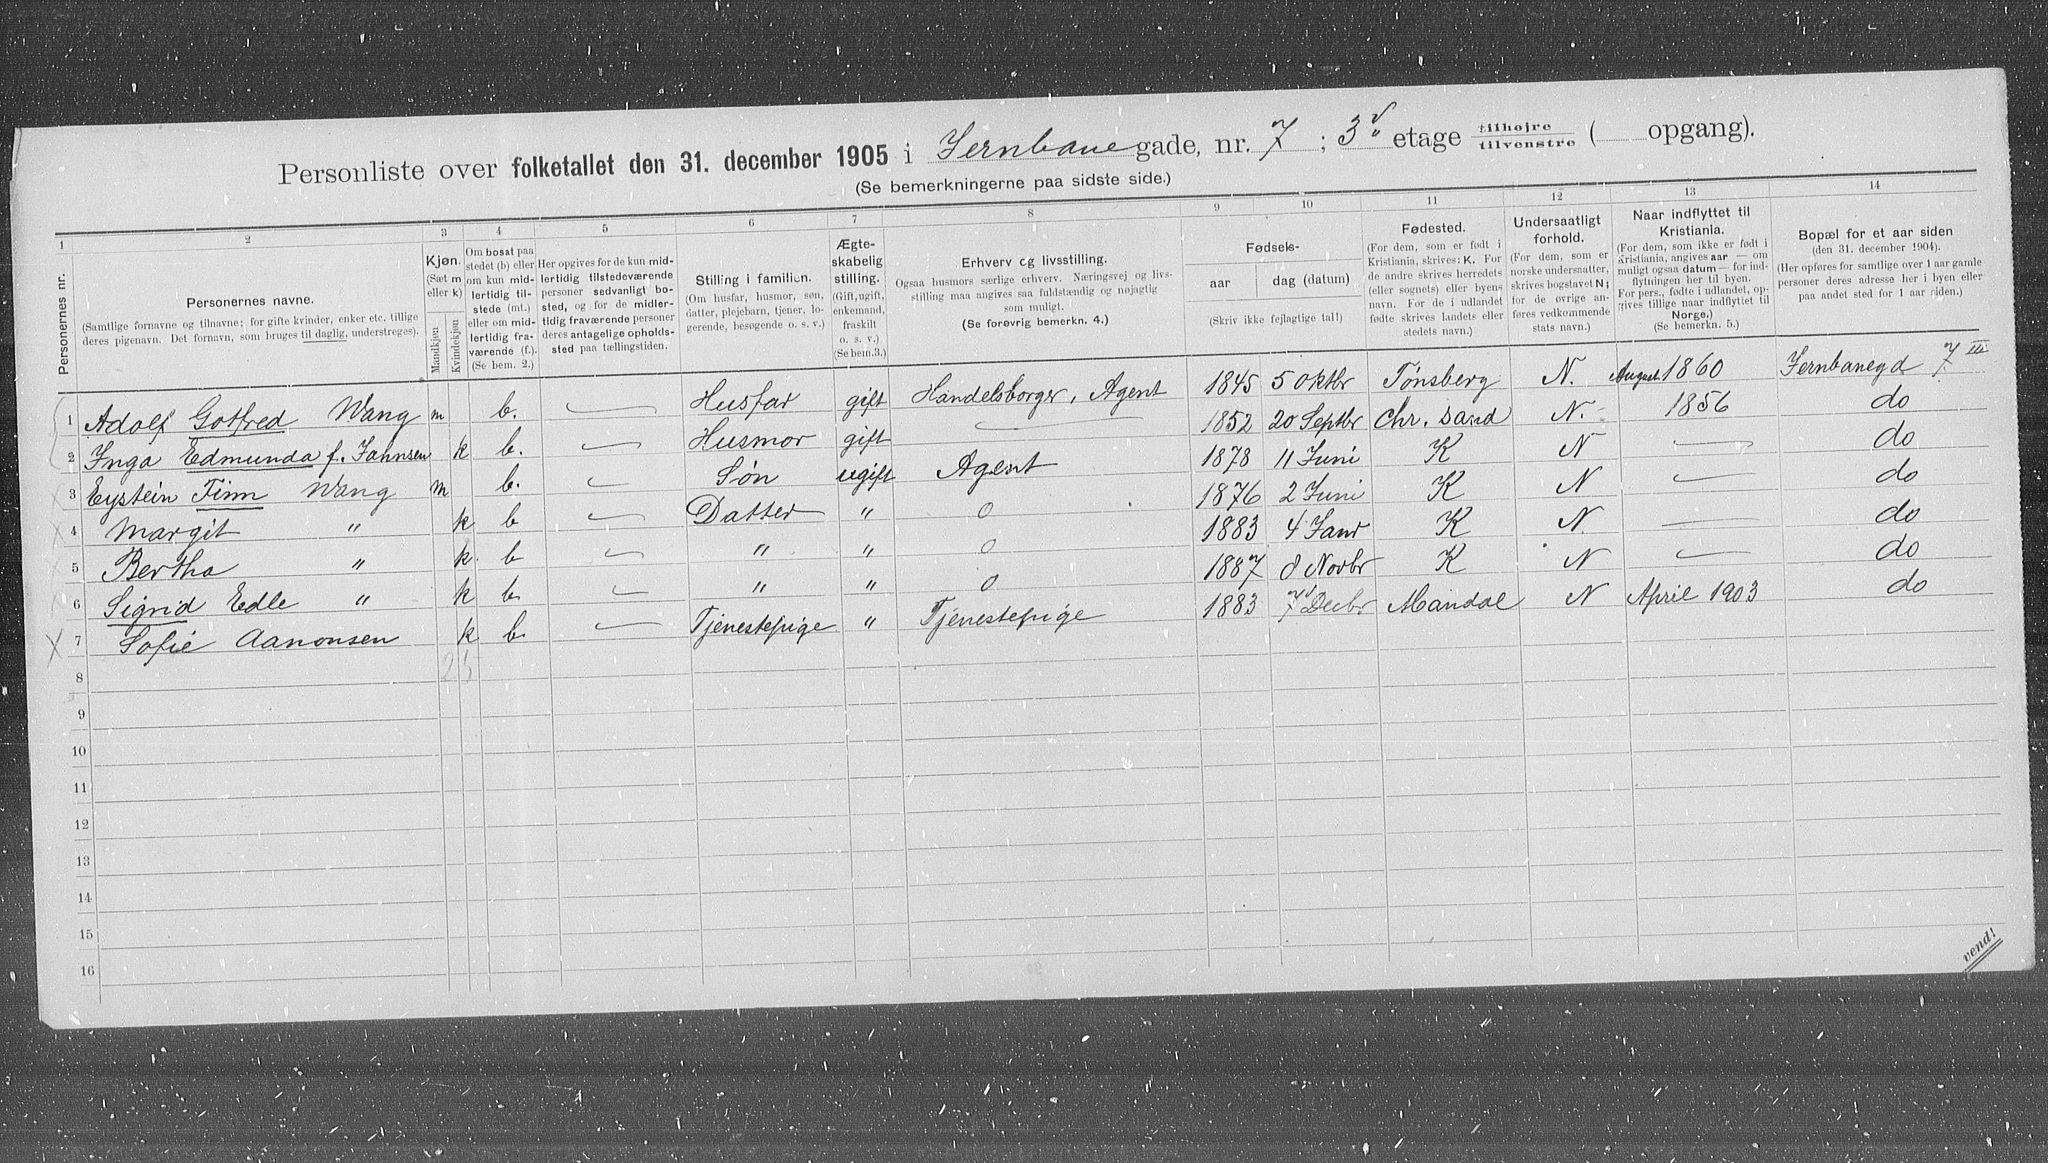 Personliste over folketallet den 31. december 1905 i Jernbanegade, nr. 7; 3 etage tilhøjre tilvenstre ( opgang).
(Se bemerkningerne paa sidste side.)
1 2 3 4 5 6 7 8 9 10 11 12 13 14
Personernes nr.
Personernes navne.
(Samtlige fornavne og tilnavne; for gifte kvinder, enker etc. tillige
deres pigenavn. Det fornavn, som bruges til daglig, understreges).
Kjøn.
(Sæt m
eller k)
Mandkjøn
Kvindekjøn
Om bosat paa
stedet (b) eller
om kun mid-
lertidig til-
stede (mt.)
eller om mid-
lertidig fra-
værende (f.).
(Se bem. 2.)
Her opgives for de kun mid-
lertidig tilstedeværende
personer sedvanligt bo-
sted, og for de midler-
tidig fraværende personer
deres antagelige opholds-
sted paa tællingstiden.
Stilling i familien.
(Om husfar, husmor, søn,
datter, plejebarn, tjener, lo-
gerende, besøgende o. s. v.)
Ægte-
skabelig
stilling.
(Gift, ugift,
enkemand,
fraskilt
o. s. v.)
(Se bem.3.)
Erhverv og livsstilling.
Ogsaa husmors særlige erhverv. Næringsvej og livs-
stilling maa angives saa fuldstændig og nøjagtig
som muligt.
(Se forøvrig bemerkn. 4.)
Fødsels-
aar dag (datum)
(Skriv ikke fejlagtige tal!)
Fødested.
(For dem, som er født i
Kristiania, skrives: K. For
de andre skrives herredets
(eller sognets) eller byens
navn. For de i udlandet
fødte skrives landets eller
stedets navn.)
Undersaatligt
forhold.
(For dem, som er
norske undersaatter,
skrives bogstavet N;
for de øvrige an-
føres vedkommende
stats navn.)
Naar indflyttet til
Kristiania.
(For dem, som ikke er født i
Kristiania, angives aar — om
muligt ogsaa datum — for ind-
flytningen her til byen.
For pers., fødte i udlandet, op-
gives tillige naar indflyttet til
Norge.)
(Se bemerkn. 5.)
Bopæl for et aar siden
(den 31. december 1904).
(Her opføres for samtlige over 1 aar gamle
personer deres adresse her i byen eller
paa andet sted for 1 aar siden.)
1 Adolf Gotfred Wang m b. Husfar gift Handelsborger, Agent 1845 5 Oktbr Tønsberg N. August 1860 Jernbanegd 7 III
2 Inga Edmunda f. Jahnsen k b. Husmor gift 1852 20 Septbr Chr. sand N. 1856 do
3 Eystein Finn Wang m b. Søn ugift Agent 1878 11 Juni K N do
4 Margit " k b Datter " 0 1876 2 Juni K N do
5 Bertha " k. b " " 0 1883 4 Janr K N. do
6 Sigrid Edle " k b. " " 0 1887 8 Novbr K N do
7 Sofie Aanonsen k b. Tjenestepige " Tjenestepige 1883 7 Decbr Mandal N April 1903 do
8 2 5
9
10
11
12
13
14
15
16
vend!